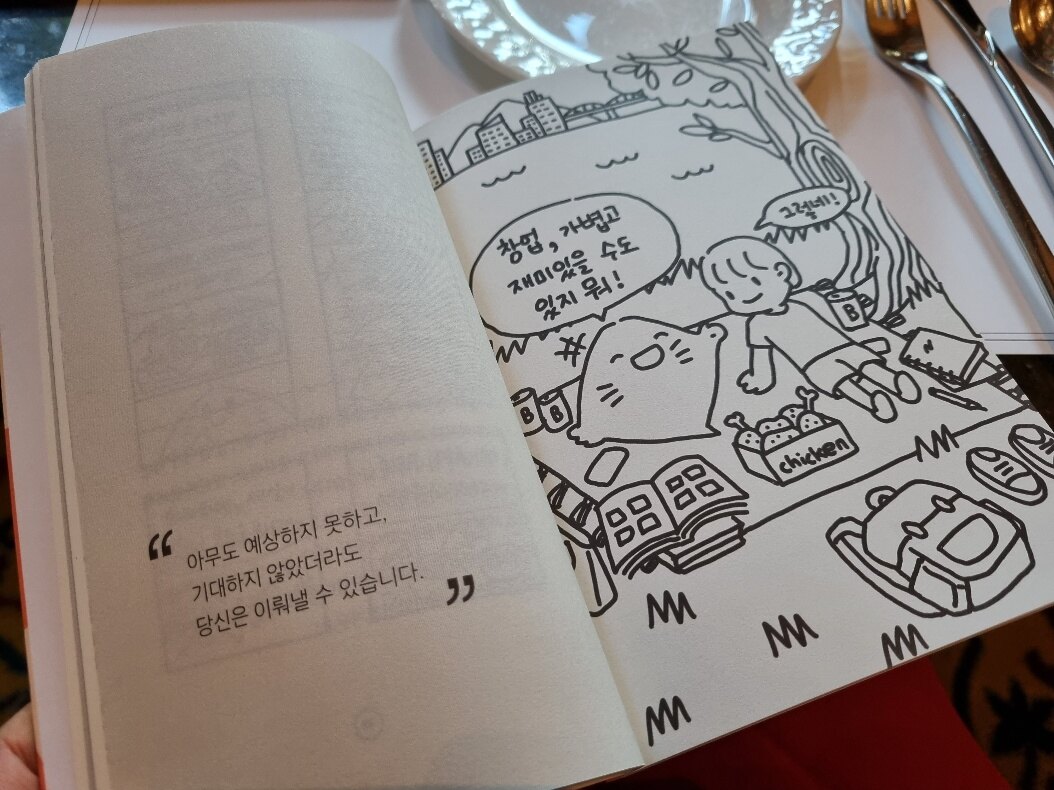 “ 아무도 예상하지 못하고,
기대하지 않았더라도
당신은 이뤄낼 수 있습니다. ”
창업, 가볍고
재미있을 수도
있지 뭐!
그렇네!
B
B
B
N
chicken